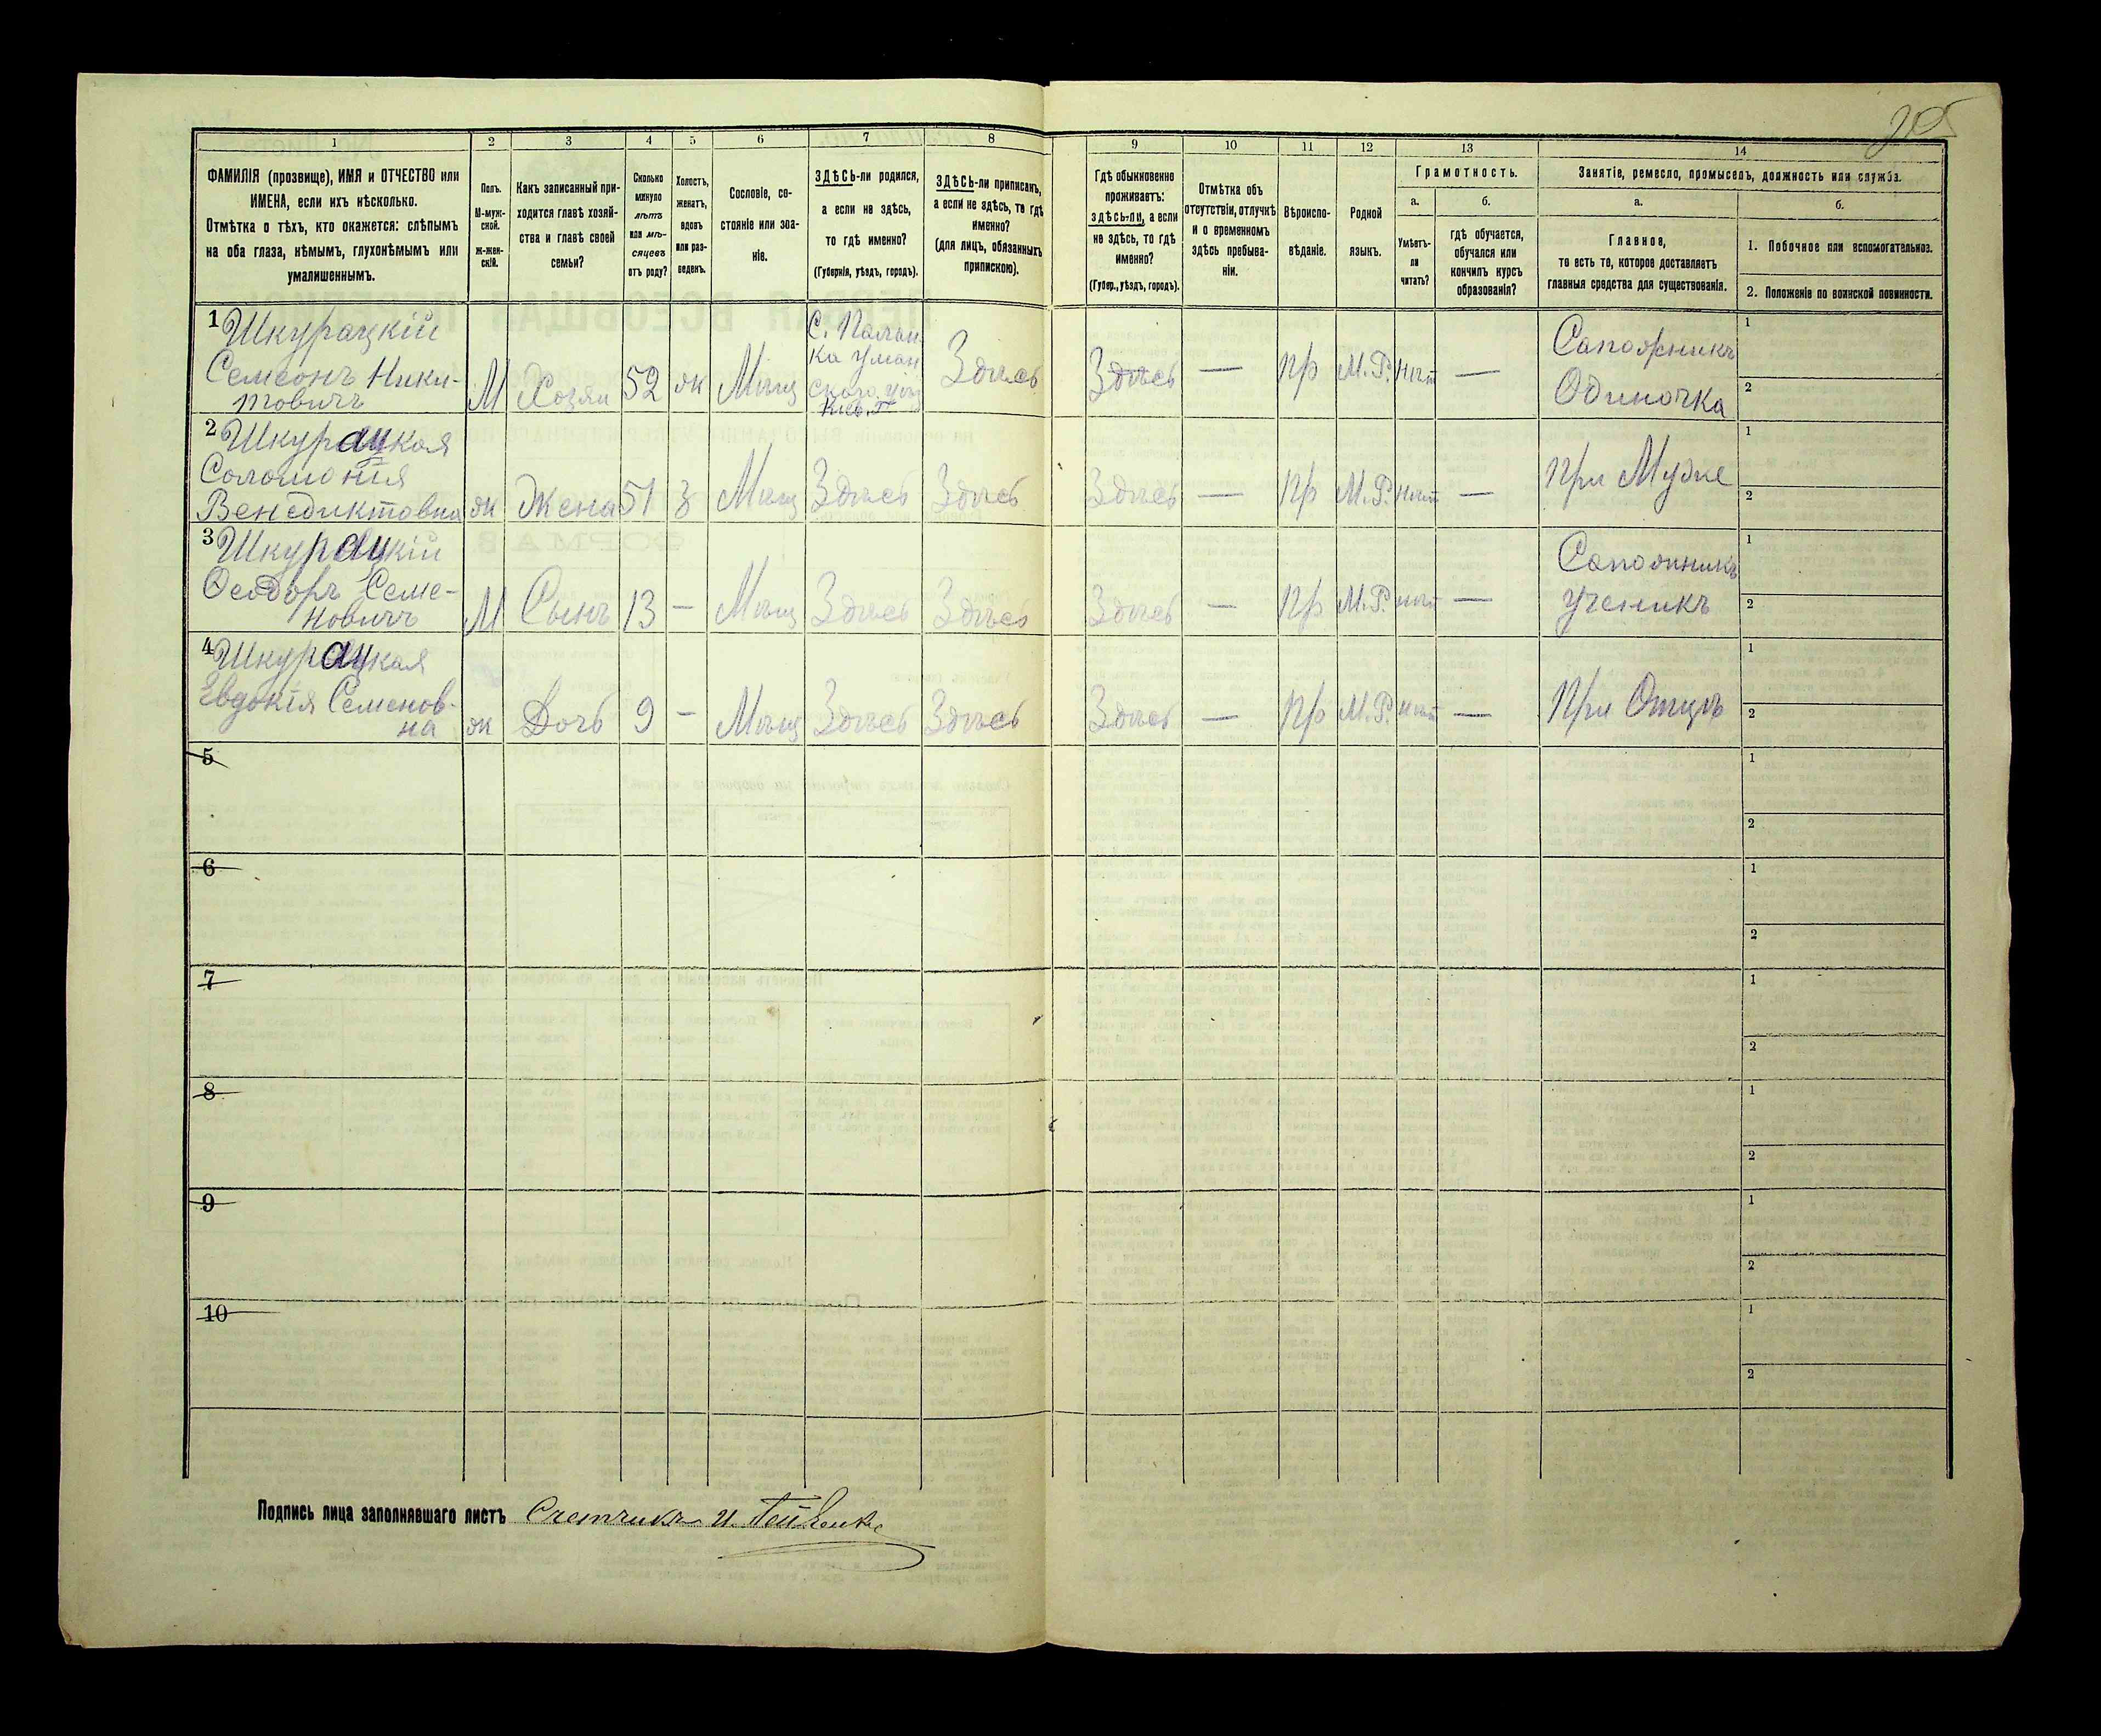 1 2 3 4 5 6 7 8 9 10 11 12 13 14
ФАМИЛІЯ (прозвище), ИМЯ и ОТЧЕСТВО или
ИМЕНА, если ихъ нѣсколько.
Отмѣтка о тѣхъ, кто окажется: слѣпымъ
на оба глаза, нѣмымъ, глухонѣмымъ или
умалишеннымъ.
Полъ.
М-муж-
ской.
ж-жен-
скій.
Какъ записанный при-
ходится главѣ хозяй-
ства и главѣ своей
семьи?
Сколько
минуло
лѣтъ
или мѣ-
сяцевъ
отъ роду?
Холостъ,
женатъ,
вдовъ
или раз-
веденъ.
Сословіе, со-
стояніе или зва-
ніе.
ЗДѢСЬ-ли родился,
а если не здѣсь,
то гдѣ именно?
(Губернія, уѣздъ, городъ).
ЗДѢСЬ-ли приписанъ,
а если не здѣсь, то гдѣ
именно?
(для лицъ, обязанныхъ
припискою).
Гдѣ обыкновенно
проживаетъ:
здѣсь-ли, а если
не здѣсь, то гдѣ
именно?
(Губер., уѣздъ, городъ).
Отмѣтка объ
отсутствіи, отлучкѣ
и о временномъ
здѣсь пребыва-
ніи.
Вѣроиспо-
вѣданіе.
Родной
языкъ.
Грамотность.
а.
Умѣетъ-
ли
читать?
б.
гдѣ обучается,
обучался или
кончилъ курсъ
образованія?
Занятіе, ремесло, промыселъ, должность или служба.
а.
Главное,
то есть то, которое доставляетъ
главныя средства для существованія.
б.
1. Побочное или вспомогательное.
2. Положеніе по воинской повинности.
1 Шкурацкій
Семеонъ Ники-
товичъ
М
Хозяи
52
ж
Мѣщ
ка Уман
скаго
Кіев. Г
Здѣсь
Здѣсь
—
пр
М.Р.
нѣт
—
Сапожникъ
Одиночка
1
2
2 Шкурацкая
Соломонія
Венедиктовна
ж
Жена
51
з
Мѣщ
Здѣсь
Здѣсь
Здѣсь
—
пр
М.Р.
нѣт
—
при Муже
1
2
3 Шкурацкій
Ѳеодоръ Семе-
новичъ
М
Сынъ
13
—
Мѣщ
Здѣсь
Здѣсь
Здѣсь
—
пр
М.Р.
нѣт
—
Сапожникъ
ученикъ
1
2
4 Шкурацкая
Евдокія Семенов-
на
ж
Дочь
9
—
Мѣщ
Здѣсь
Здѣсь
Здѣсь
—
пр
М.Р.
нѣт
—
При Отцѣ
1
2
5
1
2
6
1
2
7
1
2
8
1
2
9
1
2
10
1
2
Подпись лица заполнявшаго листъ Счетчикъ И.